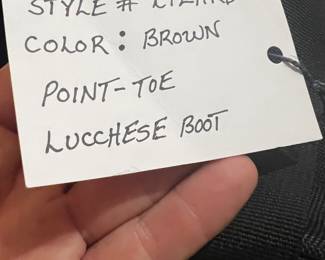 STYLE # LIZARD
COLOR: BROWN
POINT-TOE
LUCCHESE BOOT